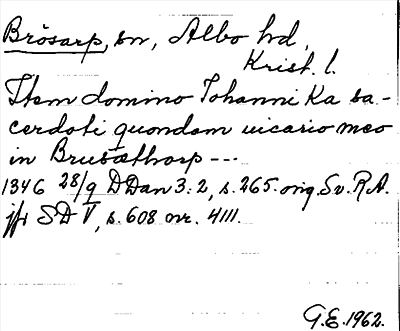 Brösarp, sn, Albo hd,
Krist. l.
Item domino Johanni Ka sa-
cerdoti quondam uicario meo
in Brusæthorp ---
1346 28/9 DDan 3:2, s. 265. orig. Sv. R.A.
jfr SD V, s. 608 nr. 4111.
G.E. 1962.